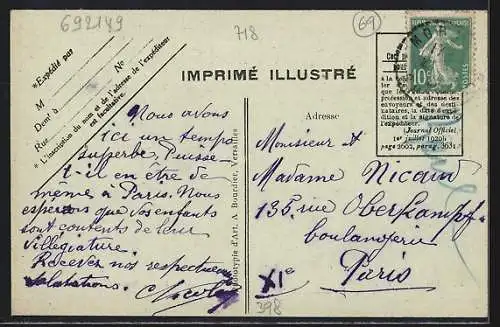 692149
718
69
*Expédié par
M
N°
Demt à
Rue
* L'inscription du nom et de l'adresse de l'expéditeur
est facultative.
IMPRIMÉ ILLUSTRÉ
10c
POSTES
Nous avons
ici un temps
superbe, Puisse-
t-il en être de
même à Paris. Nous
espérons que vos enfants
sont contents de leur
villégiature.
Recevez nos respectueuses
salutations.
Phototypie d'Art, A. Bourdier, Versailles
Adresse
profession et adresse des
envoyeurs et des desti-
nataires, la date d'expé-
dition et la signature de
l'expéditeur.
(Journal Officiel,
1er juillet 1920)
page 3602, parag. 3631
Monsieur et
Madame Nicaud
135, rue Oberkampf
boulangerie
XIe
Paris
398